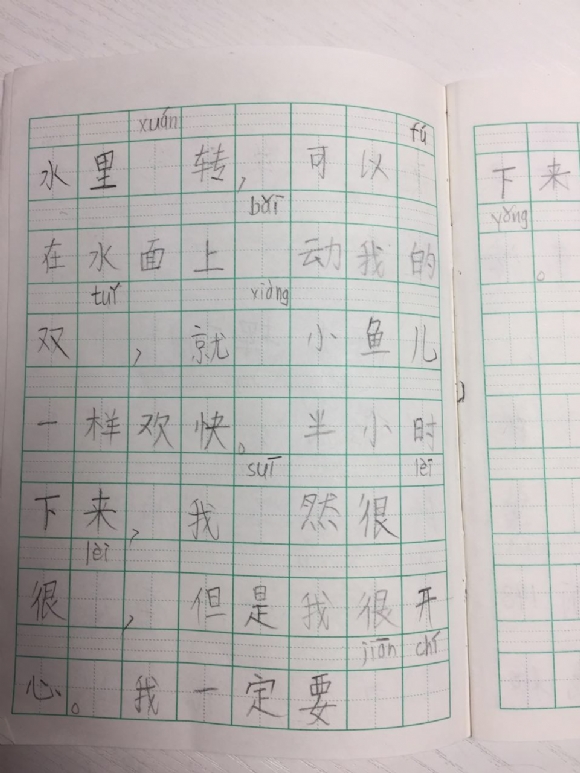 xuán fú
水里 转，可以
bǎi
在水面上 动我的
tuǐ xiàng
双 ，就 小鱼儿
一样欢快。半小时
suī lèi
下来，我 然很
lèi
很 ，但是我很开
jiān chí
心。我一定要
下来
yǒng
。